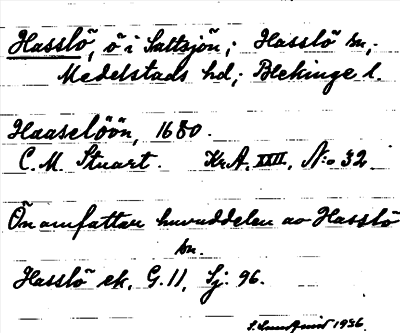 Hasslö, ö i Saltsjön; Hasslö sn,
Medelstads hd; Blekinge l.
Haaselöön, 1680.
C.M. Stuart. Kr.A. XXII, N:o 32
Ön omfattar huvuddelen av Hasslö
sn.
Hasslö ek. G. 11, Sj: 96.
1936.